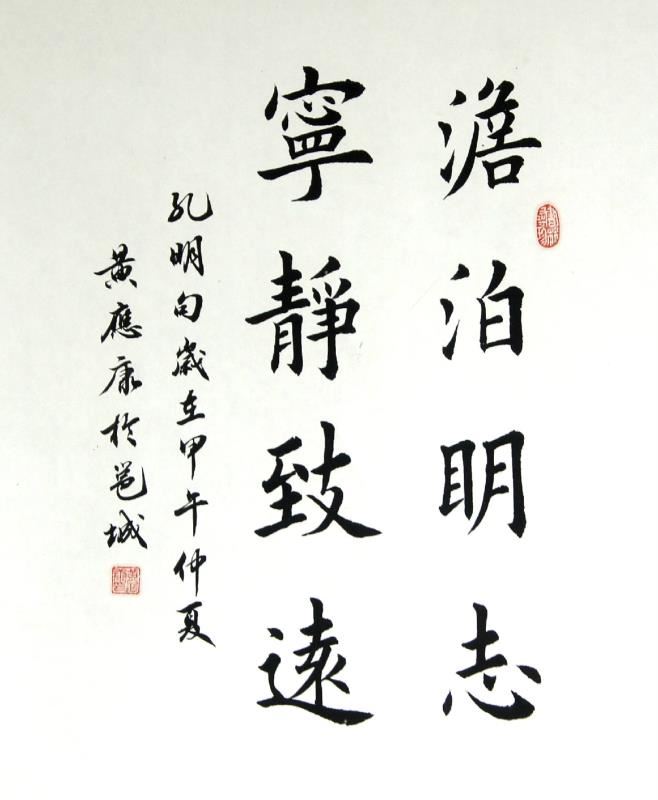 澹泊明志
寧靜致遠
孔明句歲在甲午仲夏
黃應康於邕城